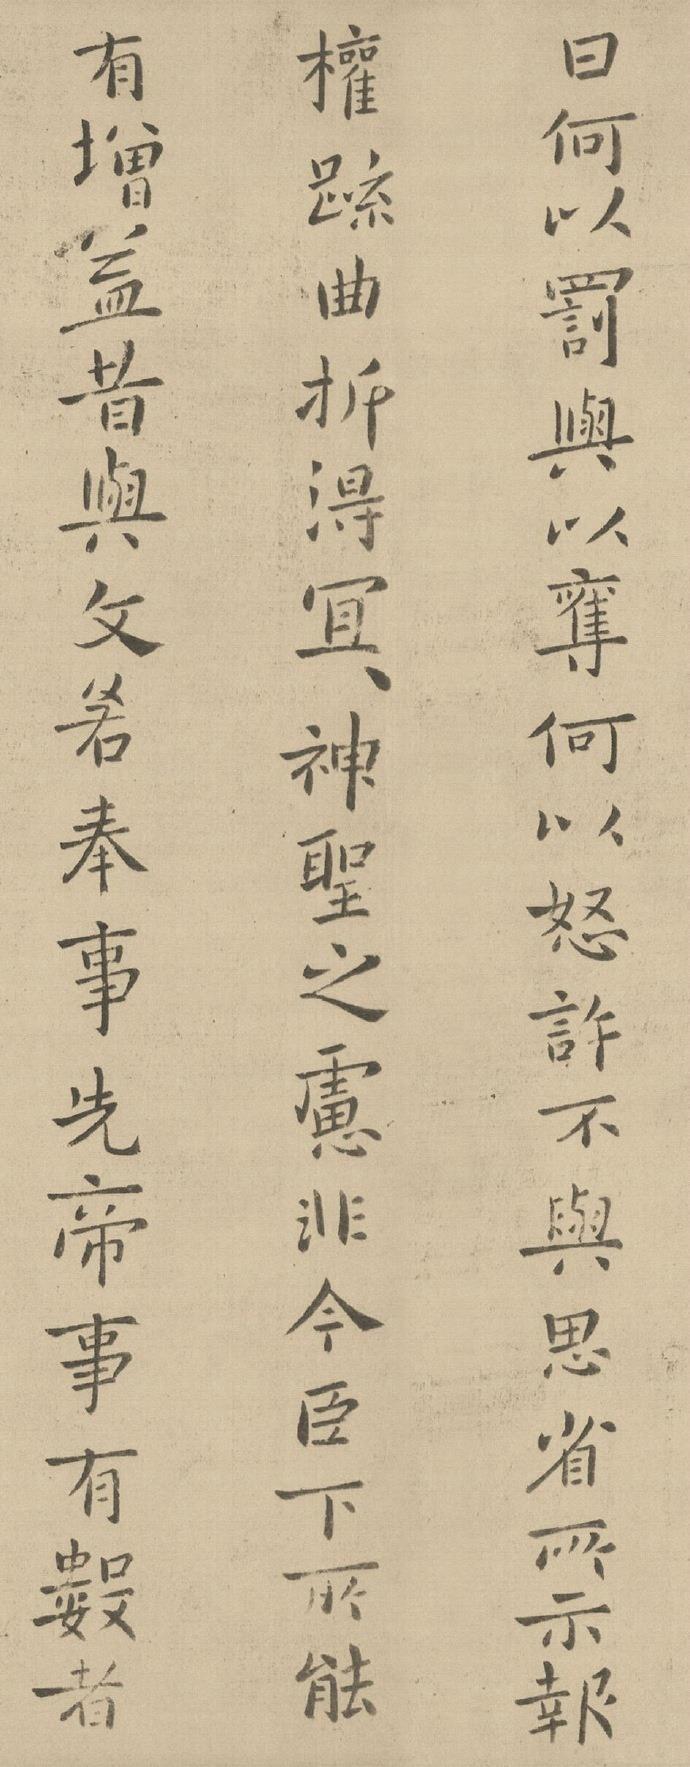 曰何以罰與以奪何以怒許不與思省所示報
權疏曲折得冝神聖之慮非今臣下所能
有增益昔與文若奉事先帝事有數者